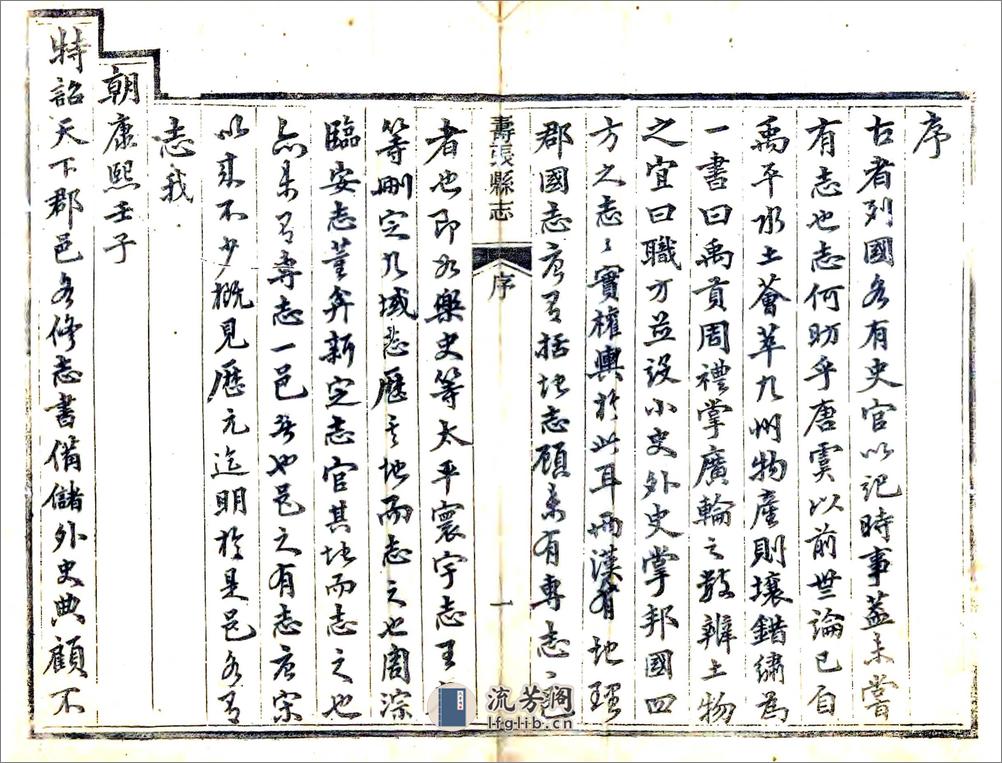 序
古者列國各有史官以記時事蓋未嘗
有志也志何昉乎唐虞以前無論已自
禹平水土薈萃九州物產則壤錯繡為
一書曰禹貢周禮掌廣輪之數辨土物
之宜曰職方並設小史外史掌邦國四
方之志〻實權輿於此耳兩漢有地理
郡國志唐有括地志顧未有專志〻
壽張縣志
序
一
者也即如樂史等太平寰宇志王
等刪定九域志歷其地而志之也周淙
臨安志董弅新定志官其地而志之也
亦未有專志一邑者也邑之有志唐宋
以來不少概見歷元迄明於是邑各有
志我
朝康熙壬子
特詔天下郡邑各修志書備儲外史典顧不
流芳閣
lfglib.cn